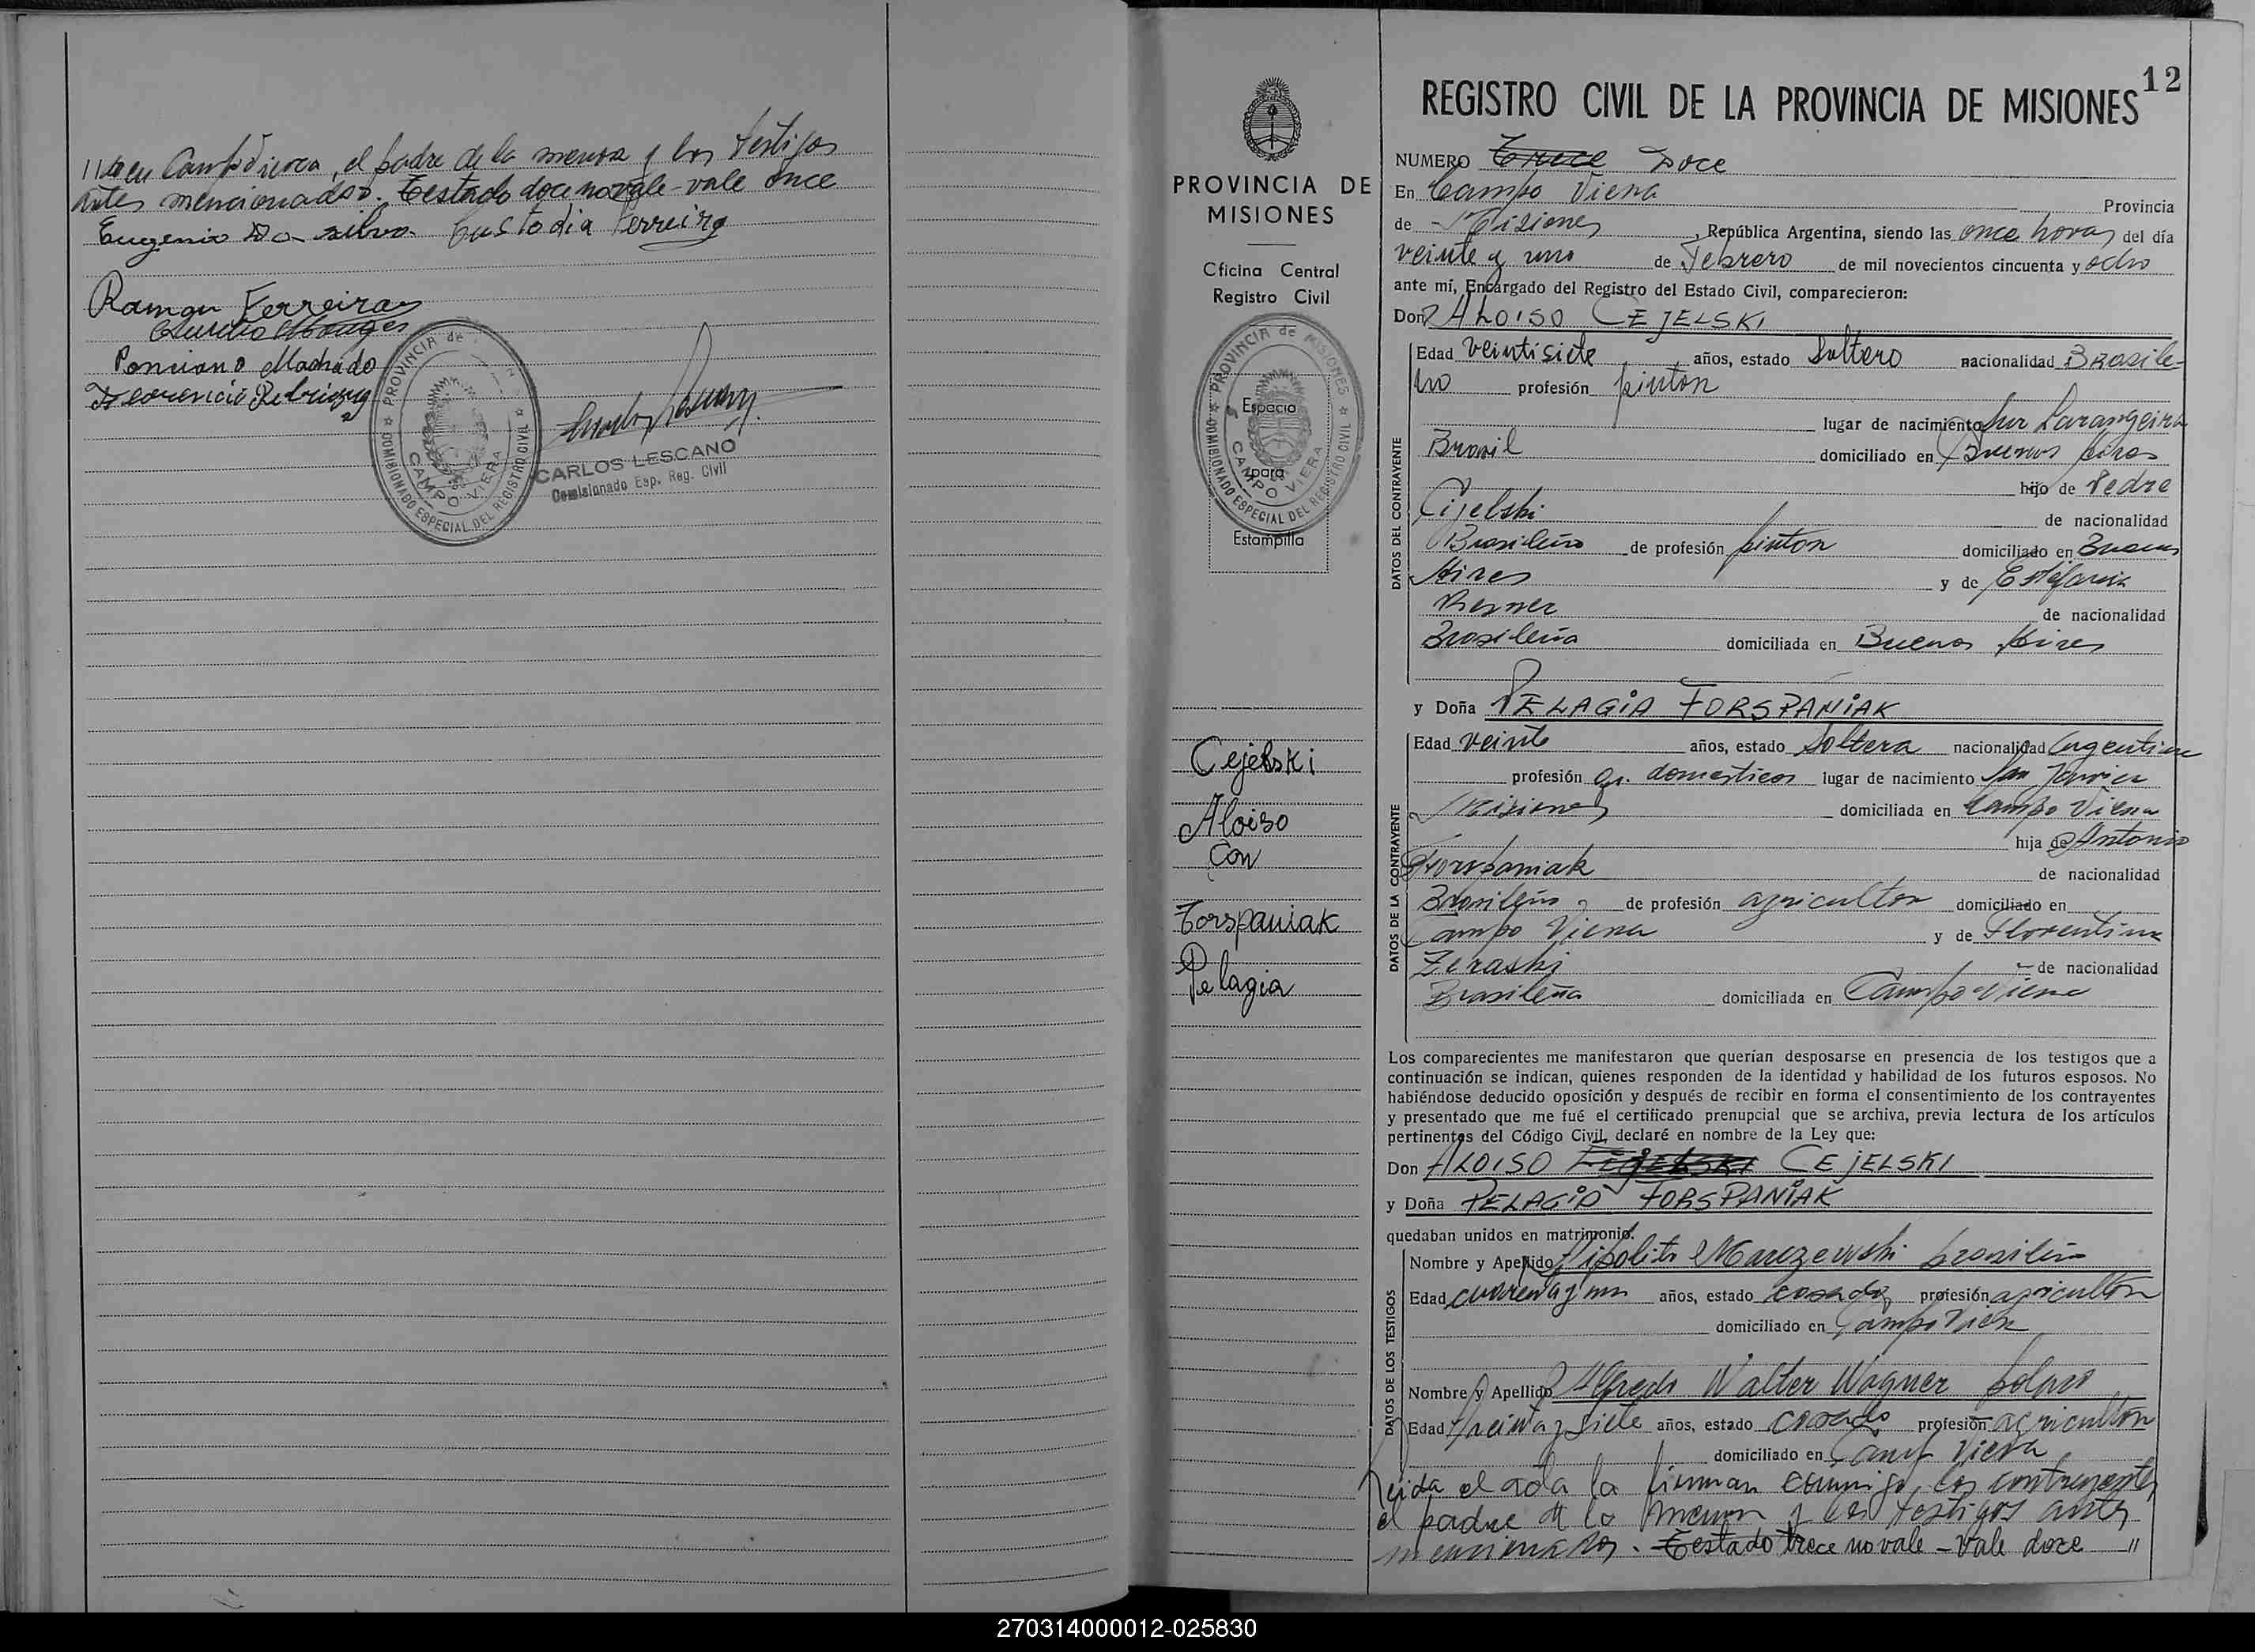 en Campo Viera, el padre de la menor y los testigos
antes mencionados. Testado doce no vale - vale once
Eugenio Da silva Custodia Ferreira
Ramon Ferreira
Ponciano Machado
PROVINCIA de
CAMPO VIERA
COMISIONADO ESPECIAL DEL REGISTRO CIVIL
CARLOS LESCANO
Comisionado Esp. Reg. Civil
PROVINCIA DE
MISIONES
Oficina Central
Registro Civil
PROVINCIA de MISIONES
Espacio
para
CAMPO VIERA
COMISIONADO ESPECIAL DEL REGISTRO CIVIL
Estampilla
Cejelski
Aloiso
Con
Forspaniak
Pelagia
12
REGISTRO CIVIL DE LA PROVINCIA DE MISIONES
NUMERO Trece Doce
En Campo Viera Provincia
de Misiones, República Argentina, siendo las once horas del día
veinte y uno de Febrero de mil novecientos cincuenta y ocho
ante mí, Encargado del Registro del Estado Civil, comparecieron:
Don ALOISO CEJELSKI
DATOS DEL CONTRAYENTE
Edad veintisiete años, estado Soltero nacionalidad Brasile-
ño profesión pintor
lugar de nacimiento Larangeira
Brasil domiciliado en Buenos Aires
hijo de Pedro
Cijelski de nacionalidad
Brasileño de profesión pintor domiciliado en Buenos
Aires y de Estefania
de nacionalidad
Brasileña domiciliada en Buenos Aires
y Doña PELAGIA FORSPANIAK
DATOS DE LA CONTRAYENTE
Edad veinte años, estado Soltera nacionalidad Argentina
profesión q. domesticos lugar de nacimiento San Javier
Misiones domiciliada en Campo Viera
hija de Antonio
Forspaniak de nacionalidad
Brasileño de profesión agricultor domiciliado en
Campo Viera y de Florentina
Zeraski de nacionalidad
Brasileña domiciliada en Campo Viera
Los comparecientes me manifestaron que querían desposarse en presencia de los testigos que a
continuación se indican, quienes responden de la identidad y habilidad de los futuros esposos. No
habiéndose deducido oposición y después de recibir en forma el consentimiento de los contrayentes
y presentado que me fué el certificado prenupcial que se archiva, previa lectura de los artículos
pertinentes del Código Civil, declaré en nombre de la Ley que:
Don ALOISO CEJELSKI
y Doña PELAGIA FORSPANIAK
quedaban unidos en matrimonio.
DATOS DE LOS TESTIGOS
Nombre y Apellido Hipolito Marczewski brasileño
Edad cuarenta y un años, estado casado profesión agricultor
domiciliado en Campo Viera
Nombre y Apellido Alfredo Walter Wagner polaco
Edad treinta y siete años, estado casado profesión agricultor
domiciliado en Campo Viera
Leida el acta la firman conmigo los contrayentes,
el padre de la menor y los testigos antes
mencionados. Testado trece no vale - vale doce "
270314000012-025830